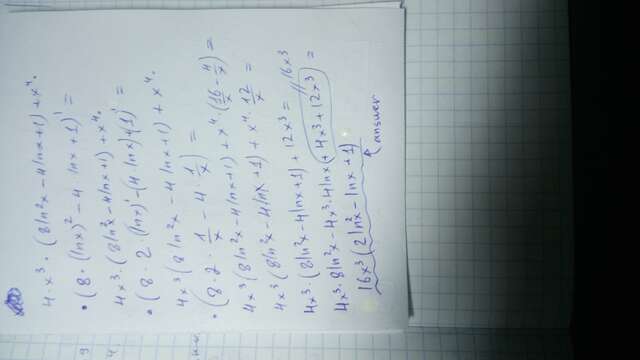 4·x³·(8ln²x-4lnx+1)+x⁴·
·(8·(lnx)²-4·lnx+1)'=
4x³·(8ln²x-4lnx+1)+x⁴·
·(8·2·(lnx)'-(4·lnx)+(1)'=
4x³(8ln²x-4lnx+1)+x⁴·
·(8·2·1/x-4·1/x)=
4x³(8ln²x-4lnx+1)+x⁴·(16/x-4/x)=
4x³(8ln²x-4lnx+1)+x⁴·12/x=
4x³·(8ln²x-4lnx+1)+12x³=
16x³
4x³·8ln²x-4x³·4lnx+4x³+12x³=
16x³(2ln²x-lnx+1)
answer